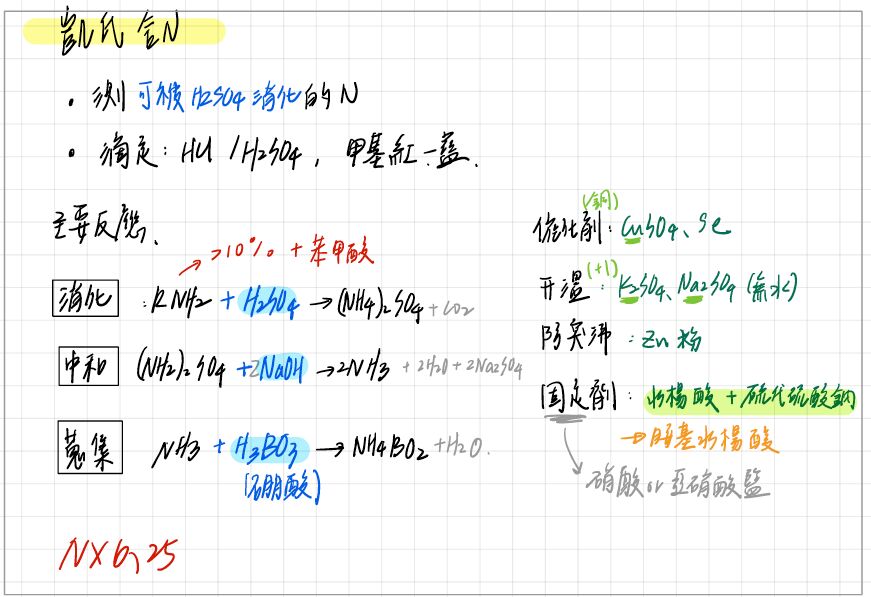 凱氏含N
• 測可被H2SO4消化的N
• 滴定：HCl / H2SO4，甲基紅-藍、
主要反應、
>10% + 苯甲酸
消化：RNH2 + H2SO4 → (NH4)2SO4 + CO2
中和 (NH2)2SO4 + 2NaOH → 2NH3 + 2H2O + 2Na2SO4
蒐集 NH3 + H3BO3 → NH4BO2 + H2O.
(硼酸)
N×6.25
(銅)
催化劑：CuSO4、Se
(+1)
升溫：K2SO4、Na2SO4 (無水)
防突沸：Zn粉
固定劑：水楊酸 + 硫代硫酸鈉
→胺基水楊酸
硝酸or亞硝酸鹽